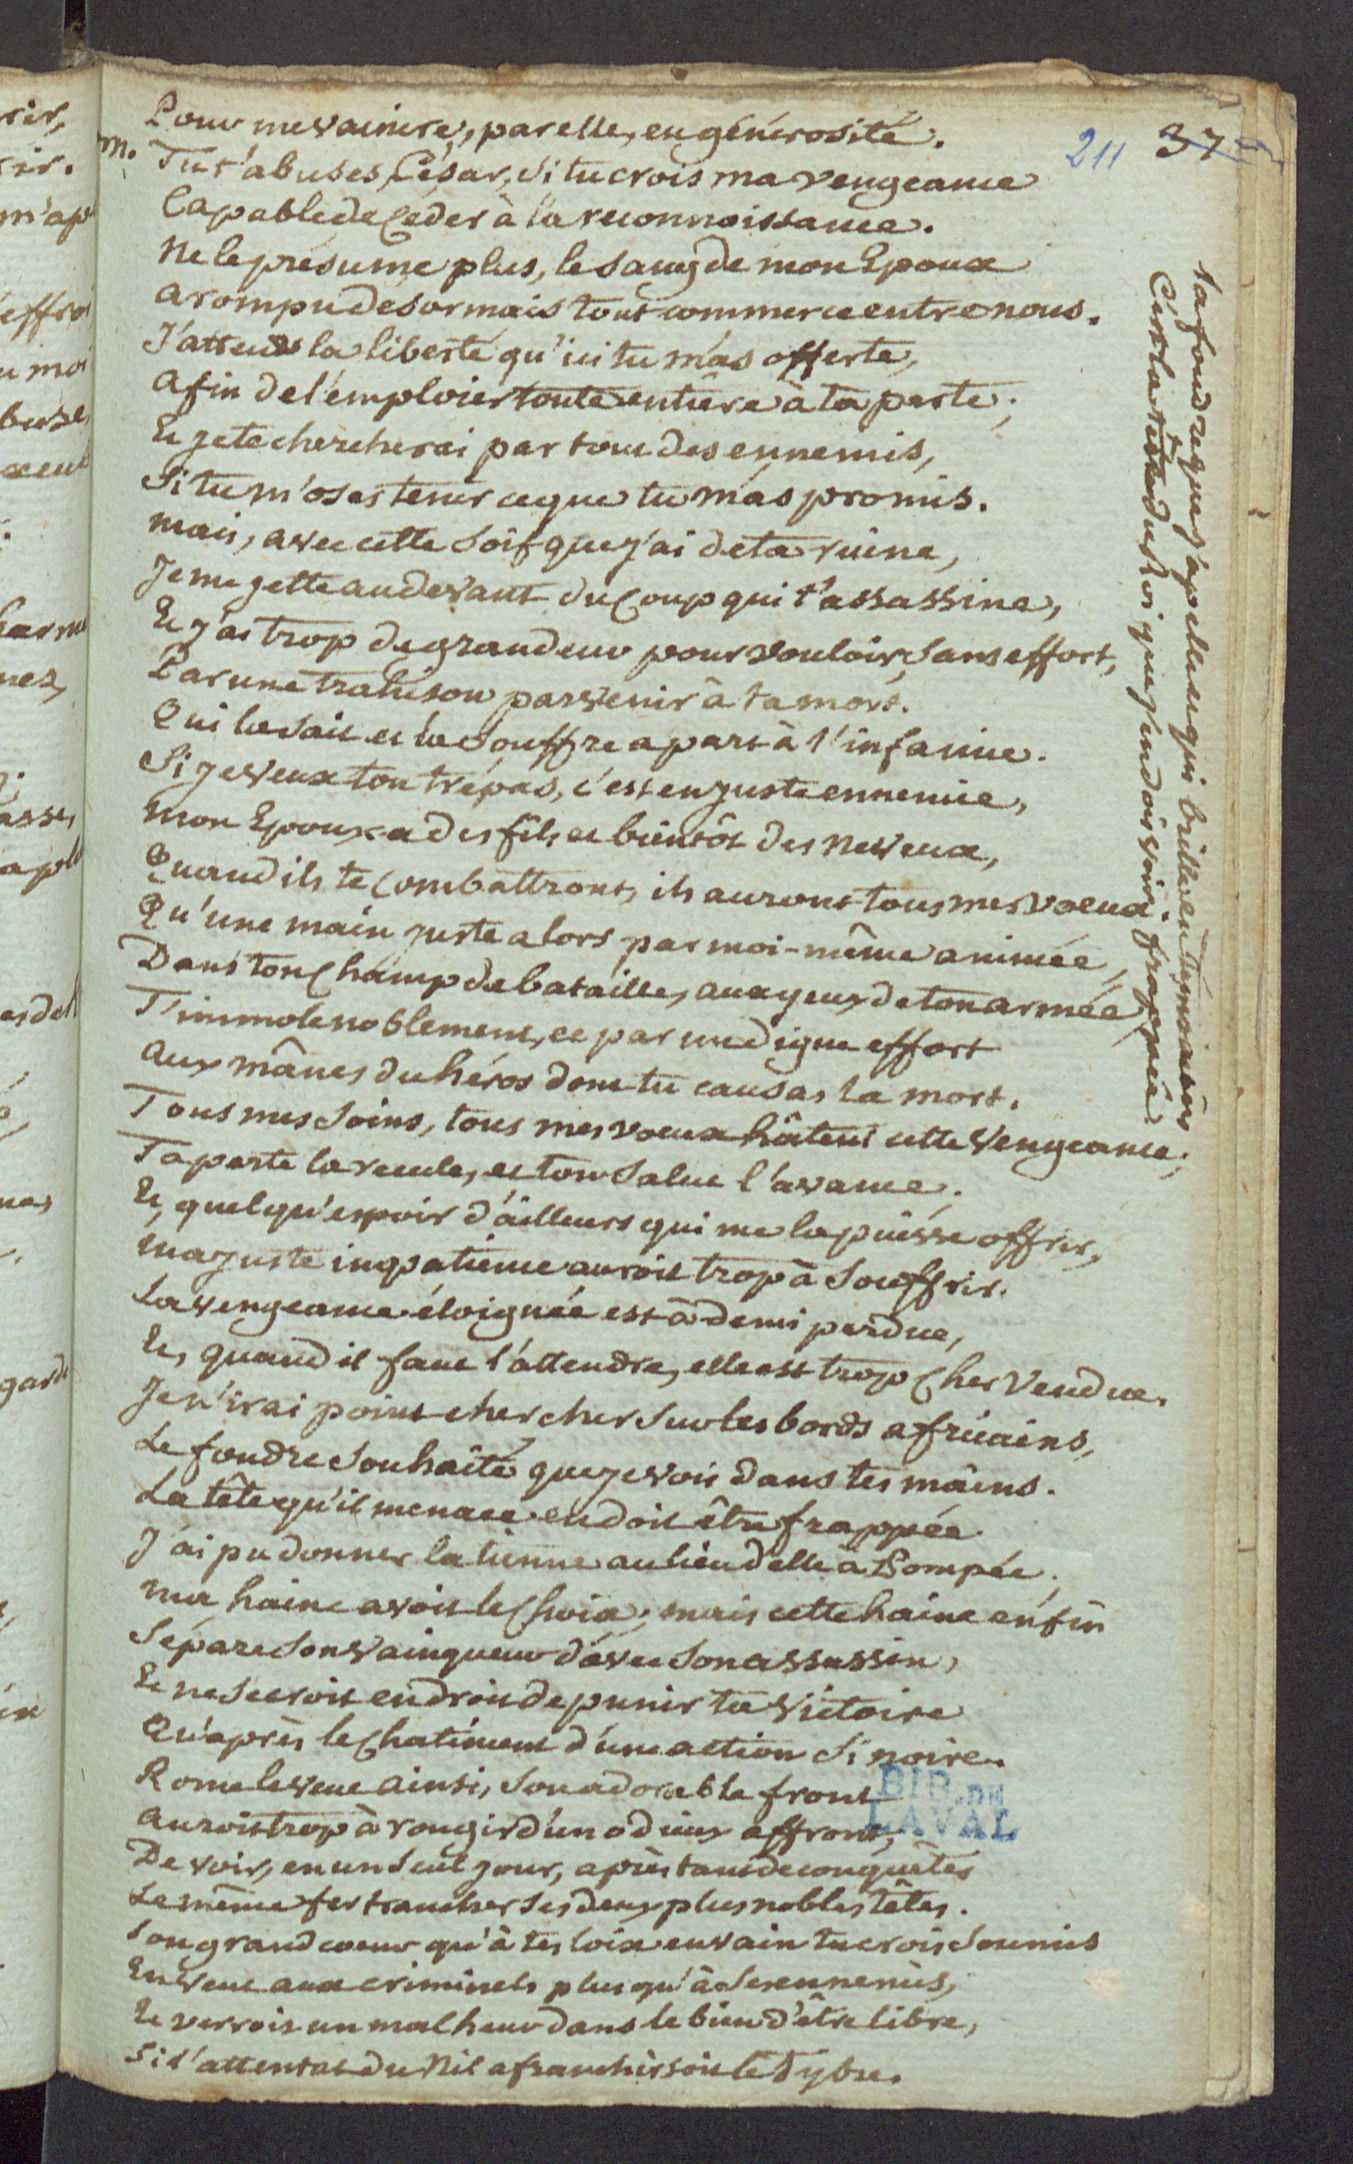 211 37
Pour me vaincre, par elle, en générosité.
Tu t'abuses, César, si tu crois ma vengeance
Capable de Ceder à la reconnoissance.
Ne le présume plus, le sang de mon Epoux
a rompu desormais tout commerce entre nous.
J'attends la liberté qu'ici tu m'as offerte,
afin de l'emploier toute entière à ta perte;
Et je te chercherai par tout des ennemis,
Si tu m'oses tenir ce que tu m'as promis.
mais, avec cette soif que j'ai de ta ruine,
Je me jette au devant du Coup qui t'assassine,
Et j'ai trop de grandeur pour vouloir, sans effort,
Par une trahison parvenir à ta mort.
Qui la sait et la souffre a part à l'infamie.
Si je veux ton trépas, c'est en juste ennemie,
mon Epoux a des fils et bientôt des neveux,
Quand ils te Combattront, ils auront tous mes voeux.
Qu'une main juste alors par moi-même animée,
Dans ton Champ de bataille, aux yeux de ton armée
T'immole noblement, et par un digne effort
aux mânes du héros dont tu causas la mort.
Tous mes soins, tous mes voeux hâtent cette vengeance;
Ta perte la recule, et ton salut l'avance.
Et, quelqu'espoir d'ailleurs qui me la puisse offrir,
ma juste impatience auroit trop à souffrir.
La vengeance éloignée est à demi perdue,
Et, quand il faut l'attendre, elle est trop Cher vendue.
Je n'irai point chercher sur les bords africains,
Le foudre souhaité que je vois dans tes mains.
La tête qu'il menace en doit être frappée
J'ai pu donner la tienne au lieu d'elle à Pompée;
ma haine avoit le Choix; mais cette haine enfin
Sépare son vainqueur d'avec son assassin,
Et ne se croit en droit de punir ta victoire
Qu'après le Chatiment d'une action si noire.
Rome le veut ainsi, son adorable front
auroit trop à rougir d'un odieux affront,
De voir, en un seul jour, après tant de conquêtes
Le même fer trancher ses deux plus nobles têtes.
Son grand coeur qu'à tes loix envain tu crois soumis
En veut aux criminels plus qu'à ses ennemis,
Et verroit un malheur dans le bien d'être libre,
Si l'attentat du Nil afranchissoit le Tybre.
la foudre que j'apelle et qui brille en tes mains
C'est la tête du Roi que j'en dois voir frappée
BIB. DE
LAVAL